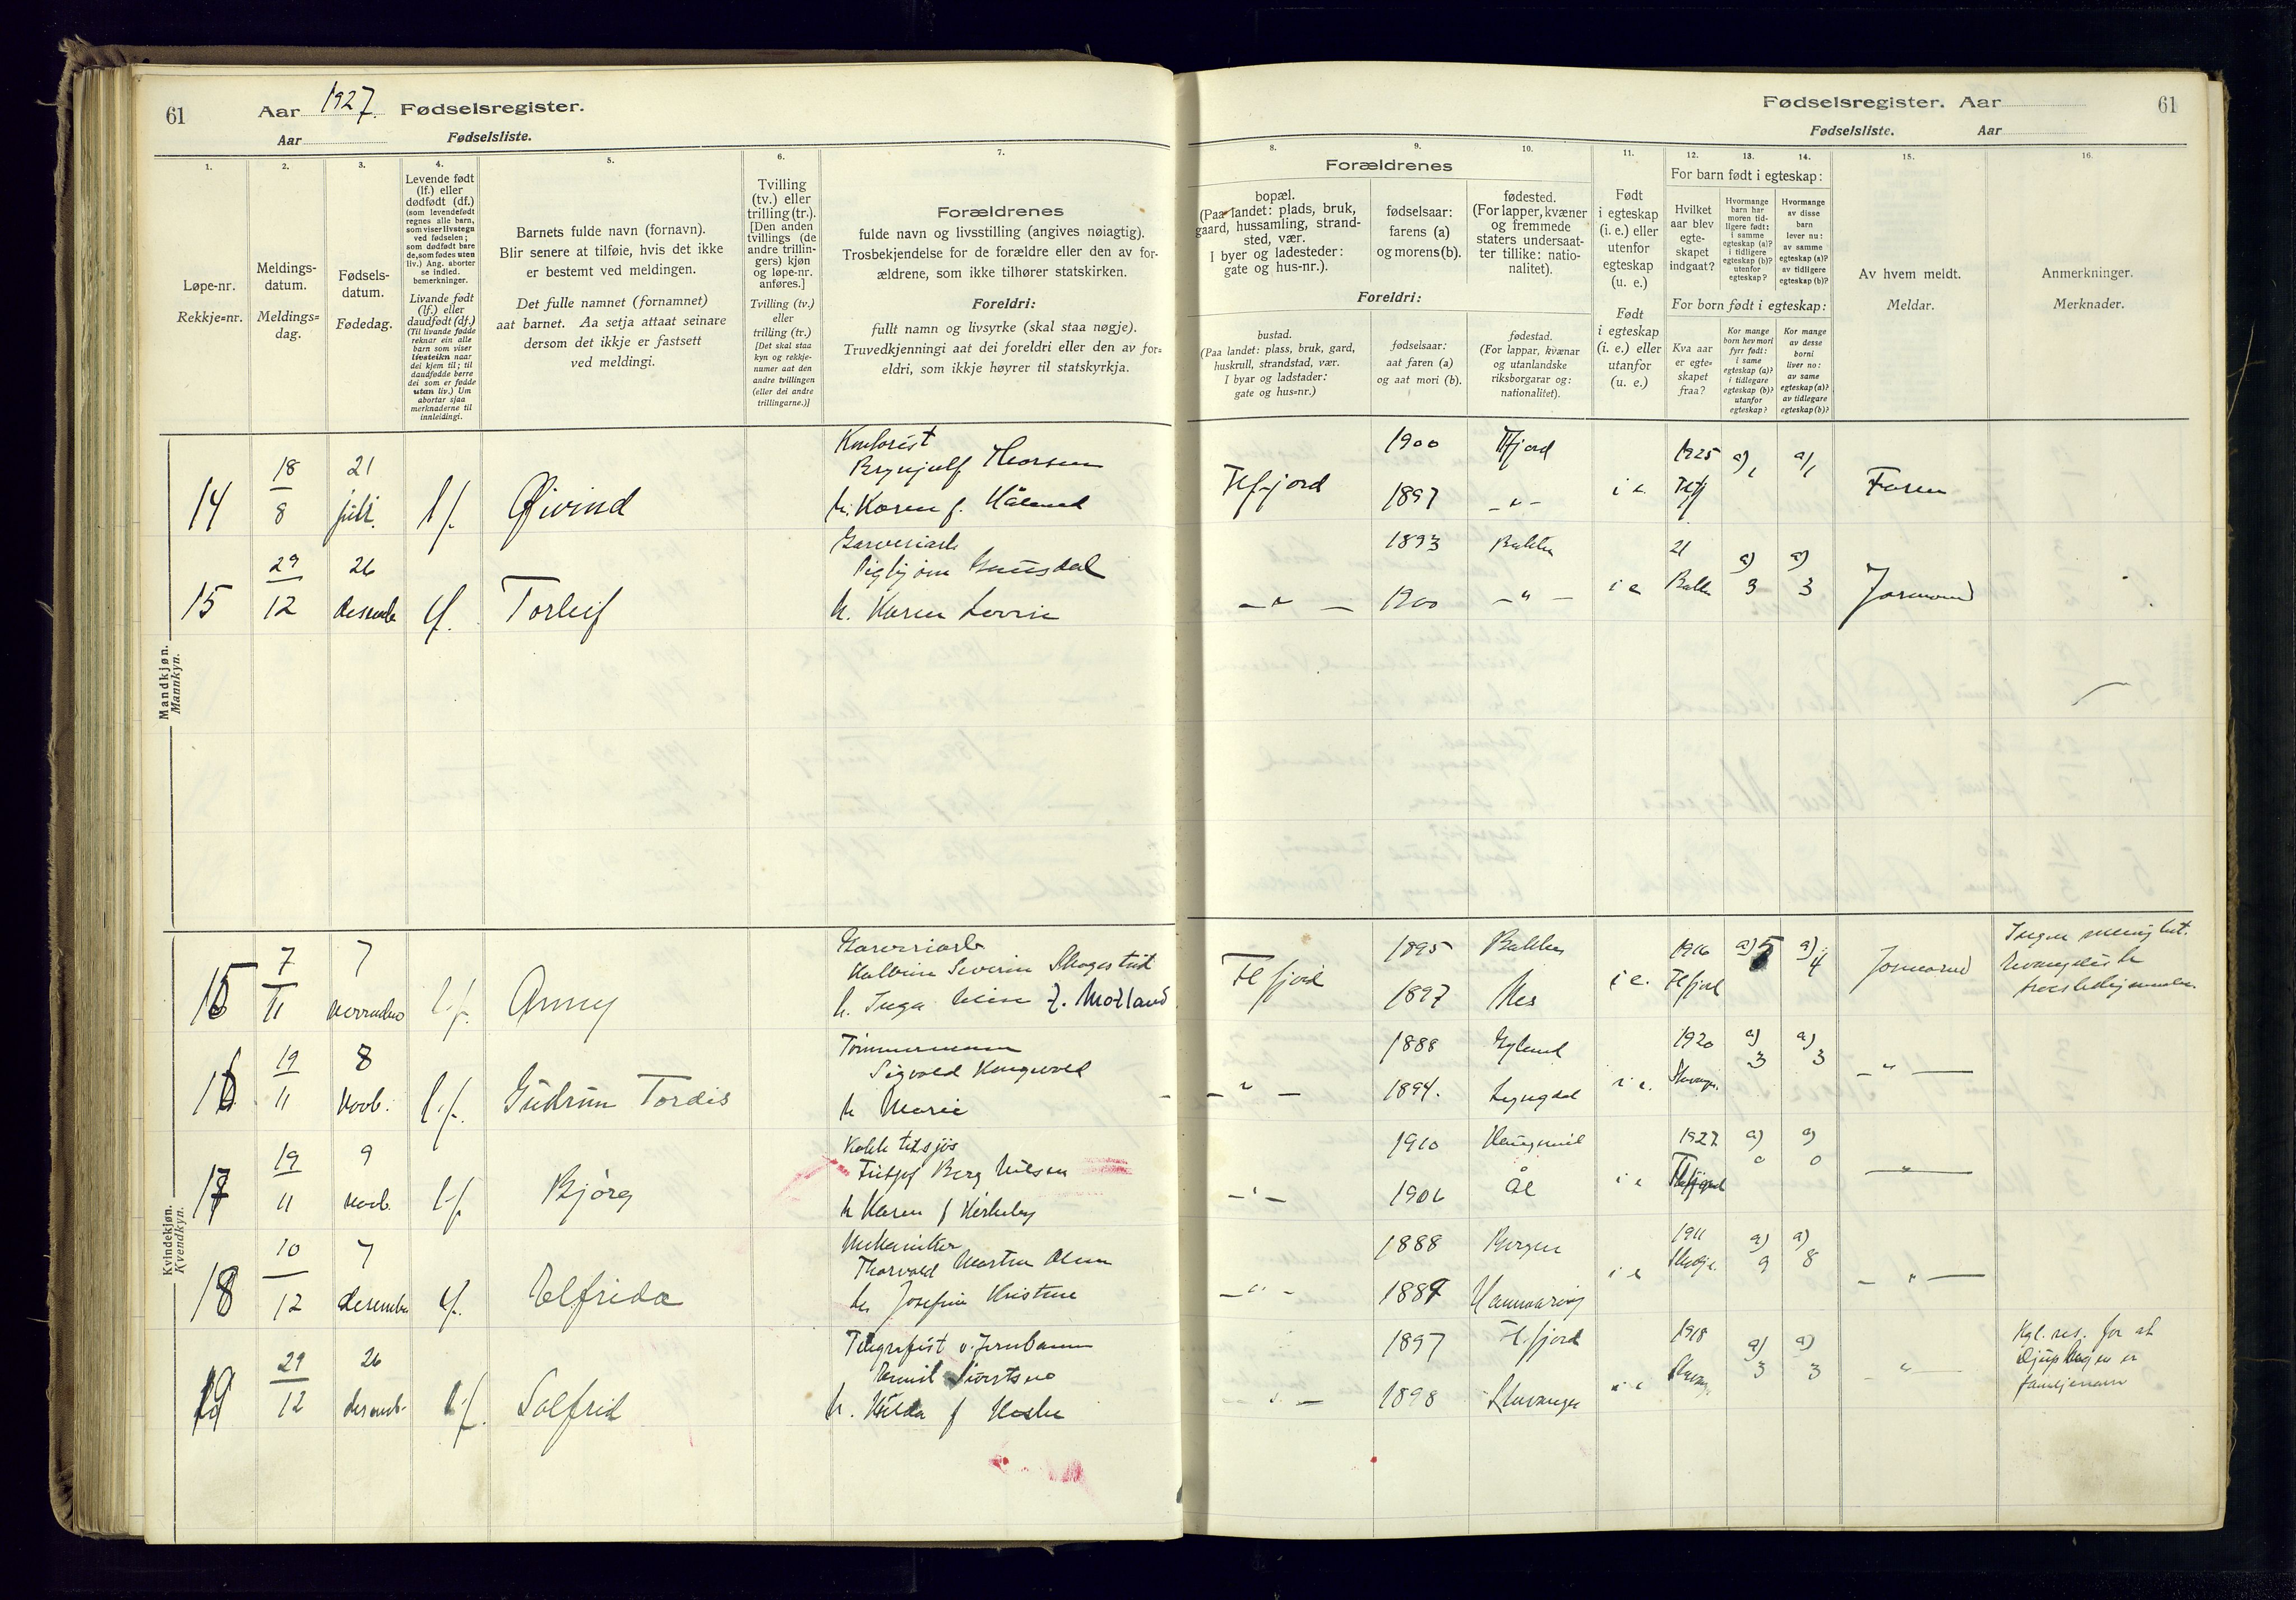 61
Aar 1927. Fødselsregister.
Aar Fødselsliste.
1.
2.
3.
4.
5.
6.
7.
Løpe-nr.
Rekkje=nr.
Meldings-
datum.
Meldings=
dag.
Fødsels-
datum.
Fødedag.
Levende født
(lf.) eller
dødfødt (df.)
(som levendefødt
regnes alle barn,
som viser livstegn
ved fødselen;
som dødfødt bare
de, som fødes uten
liv.) Ang. aborter
se indled.
bemerkninger.
Livande født
(lf.) eller
daudfødt (df.)
(Til livande fødde
reknar ein alle
barn som viser
livsteikn naar
dei kjem til; til
daudfødde berre
dei som er fødde
utan liv.) Um
abortar sjaa
merknaderne til
innleidingi.
Barnets fulde navn (fornavn).
Blir senere at tilføie, hvis det ikke
er bestemt ved meldingen.
Det fulle namnet (fornamnet)
aat barnet. Aa setja attaat seinare
dersom det ikkje er fastsett
ved meldingi.
Tvilling
(tv.) eller
trilling (tr.).
[Den anden
tvillings (de
andre trillin-
gers) kjøn
og løpe-nr.
anføres.]
Tvilling (tv.)
eller
trilling (tr.)
[Det skal staa
kyn og rekkje-
numer aat den
andre tvillingen
(eller dei andre
trillingarne.)]
Forældrenes
fulde navn og livsstilling (angives nøiagtig).
Trosbekjendelse for de forældre eller den av for-
ældrene, som ikke tilhører statskirken.
Foreldri:
fullt namn og livsyrke (skal staa nøgje).
Truvedkjenningi aat dei foreldri eller den av for=
eldri, som ikkje høyrer til statskyrkja.
Mandkjøn.
Mannkyn.
14 18/8 21 juli. lf. Øivind
Kontorist
Brynjulf Thorsen
h. Karen f.
15 29/12 26 lf. Torleif
h. Karen
Kvindekjøn.
Kvendkyn.
15 7/11 7 l.f. Anny
Severin
h. Inga f. Motland
16 19/11 8 Novb. l.f. Gudrun Tordis
Tømmermann
Sigvald
h Marie
17 19/11 9 Novb. l.f. Bjørg
Berg Nilsen
h Karen f Kirkeby
18 10/12 7 desember lf. Elfrida
Mekaniker
Thorvald Olsen
h. Josefine Kristine
19 29/12 26 l.f. Solfrid
Telegrafist v. Jernbanen
h. Hilda f
Fødselsregister. Aar
61
Fødselsliste. Aar
8.
9.
10.
11.
12.
13.
14.
15.
16.
Forældrenes
bopæl.
(Paa landet: plads, bruk,
gaard, hussamling, strand-
sted, vær.
I byer og ladesteder:
gate og hus-nr.).
fødselsaar:
farens (a)
og morens (b).
fødested.
(For lapper, kvæner
og fremmede
staters undersaat-
ter tillike: natio-
nalitet).
Foreldri:
bustad.
(Paa landet: plass, bruk, gard,
huskrull, strandstad, vær.
I byar og ladstader:
gate og hus=nr.)
fødselsaar:
aat faren (a)
og aat mori (b).
fødestad.
(For lappar, kvænar
og utanlandske
riksborgarar og:
nationalitet).
Født
i egteskap
(i. e.) eller
utenfor
egteskap
(u. e.)
Født
i egteskap
(i. e.) eller
utanfor
(u. e.)
For barn født i egteskap:
Hvilket
aar blev
egte-
skapet
indgaat?
Hvormange
barn har
moren tid-
ligere født:
i samme
egteskap (a)?
i tidligere
egteskap (b)?
utenfor
egteskap?
Hvormange
av disse
barn
lever nu:
av samme
egteskap (a)?
av tidligere
egteskap (b)?
For born født i egteskap:
Kva aar
er egte-
skapet
fraa?
Kor mange
born hev mori
fyrr født:
i same
egteskap (a)?
i tidlegare
egteskap (b)?
utanfor
egteskap?
Kor mange
av desse
borni
liver no:
av same
egteskap (a)?
av tidlegare
egteskap (b)?
Av hvem meldt.
Meldar.
Anmerkninger.
Merknader.
Flfjord 1900 Flfjord i e. 1925 a) 1 a) 1 Faren
1897 — " —
— " — 1893 Bakke i e 21 a) 3 a) 3 Jormord
1900 — " —
Flfjord 1895 Bakke i e. 1916 Flfjord a) 5 a) 4 Jormord
1897 Nes
— " — 1888 Gyland i e. 1920 a) 3 a) 3 — " —
1894. Lyngdal
— " — 1910 i e 1927 Flfjord a) 0 a) 0 — " —
1906 Ål
— " — 1888 Bergen i e 1911 a) 9 a) 8 — " —
1889
— " — 1897 Flfjord i e 1918 a) 3 a) 3 — " —
1898 Stavanger
Kgl. res. for at
er
familjenavn